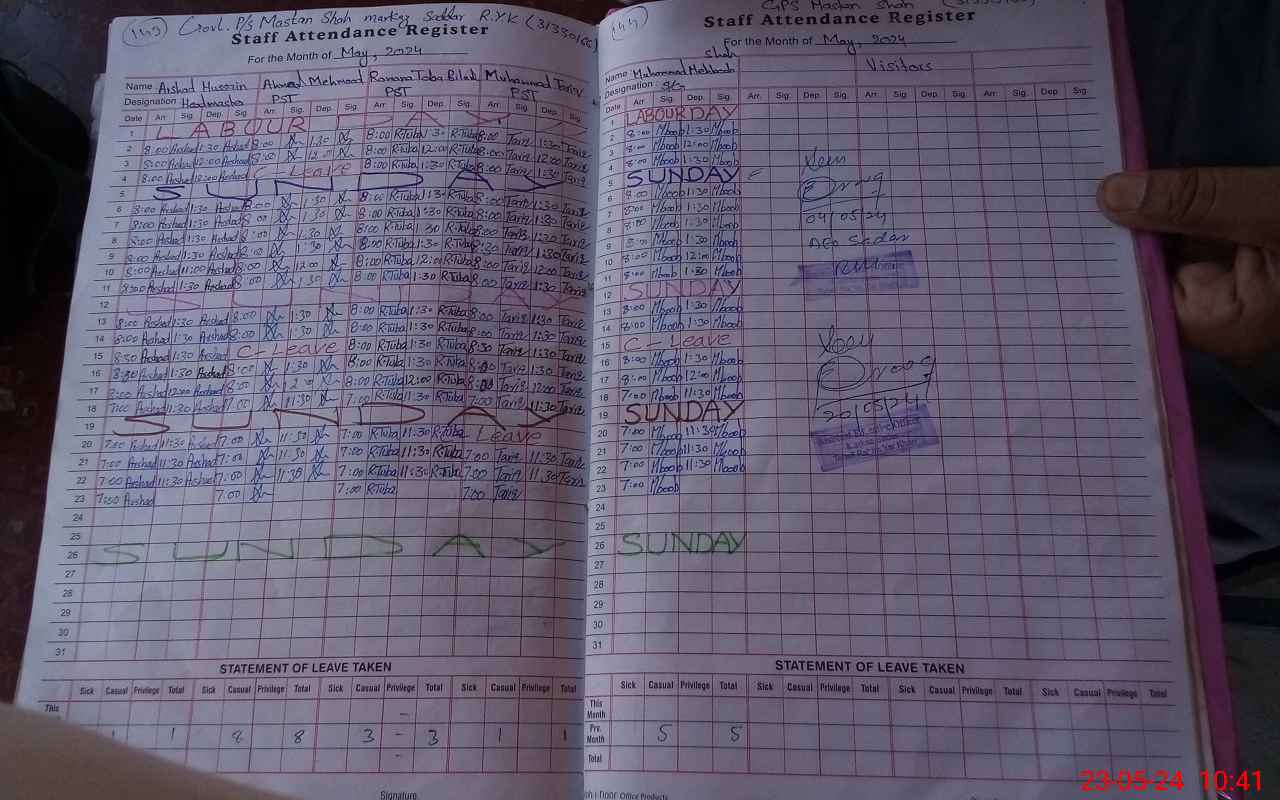 (143) Govt. P/S Mastan Shah markaz Saddar R.Y.K (31330166
Staff Attendance Register
For the Month of May, 2024
Name Arshad Hussain Ahmed Mehmood Ramana Toba Bilal Muhammad Tariq
Designation Headmaster PST PST PST
Date Arr. Sig. Dep. Sig. Arr. Sig. Dep. Sig. Arr. Sig. Dep. Sig. Arr. Sig. Dep. Sig.
1 LABOUR DAY
2 8:00 Arshad 1:30 Arshad 8:00 1:30 8:00 R.Tuba 1:30 R.Tuba 8:00 Tariq 1:30 Tariq
3 8:00 Arshad 12:00 Arshad 8:00 12:00 8:00 R.Tuba 12:00 R.Tuba 8:00 Tariq 12:00 Tariq
4 8:00 Arshad 12:00 Arshad C-Leave 8:00 R.Tuba 1:30 R.Tuba 8:00 Tariq 1:30 Tariq
5 SUNDAY
6 8:00 Arshad 1:30 Arshad 8:00 1:30 8:00 R.Tuba 1:30 R.Tuba 8:00 Tariq 1:30 Tariq
7 8:00 Arshad 1:30 Arshad 8:00 1:30 8:00 R.Tuba 1:30 R.Tuba 8:00 Tariq 1:30 Tariq
8 8:00 Arshad 1:30 Arshad 8:00 1:30 8:00 R.Tuba 1:30 R.Tuba 8:00 Tariq 1:30 Tariq
9 8:00 Arshad 1:30 Arshad 8:00 1:30 8:00 R.Tuba 1:30 R.Tuba Tariq 1:30 Tariq
10 8:00 Arshad 11:00 Arshad 8:00 12:00 8:00 R.Tuba 12:00 R.Tuba 8:00 Tariq 12:00 Tariq
11 8:00 Arshad 1:30 Arshad 8:00 1:30 8:00 R.Tuba 1:30 R.Tuba 8:00 Tariq 1:30 Tariq
12 SUNDAY
13 8:00 Arshad 1:30 Arshad 8:00 1:30 8:00 R.Tuba 1:30 R.Tuba 8:00 Tariq 1:30 Tariq
14 8:00 Arshad 1:30 Arshad 8:00 1:30 8:00 R.Tuba 1:30 R.Tuba 8:00 Tariq 1:30 Tariq
15 8:50 Arshad 1:30 Arshad C-Leave 8:00 R.Tuba 1:30 R.Tuba 8:30 Tariq 1:30 Tariq
16 Arshad 1:30 Arshad 8:00 1:30 8:00 R.Tuba 1:30 R.Tuba Tariq 1:30 Tariq
17 8:00 Arshad 12:00 Arshad 8:00 12:00 8:00 R.Tuba 12:00 R.Tuba Tariq 12:00 Tariq
18 7:00 Arshad 11:30 Arshad 7:00 11:30 7:00 R.Tuba 11:30 R.Tuba 7:00 Tariq 11:30 Tariq
19 SUNDAY
20 7:00 Arshad 11:30 Arshad 7:00 11:30 7:00 R.Tuba 11:30 R.Tuba Leave
21 7:00 Arshad 11:30 Arshad 7:00 11:30 7:00 R.Tuba 11:30 R.Tuba 7:00 Tariq 11:30 Tariq
22 7:00 Arshad 11:30 Arshad 7:00 11:30 7:00 R.Tuba 11:30 R.Tuba 7:00 Tariq 11:30 Tariq
23 7:00 Arshad 7:00 7:00 R.Tuba 7:00 Tariq
24
25
26 SUNDAY
27
28
29
30
31
STATEMENT OF LEAVE TAKEN
Sick Casual Privilege Total Sick Casual Privilege Total Sick Casual Privilege Total Sick Casual Privilege Total
This -
1 1 8 8 3 - 3 1 1
Signature
(144) GPS Mastan Shah (31330166)
Staff Attendance Register
For the Month of May, 2024
Shah
Name Muhammad Mehboob Visitors
Designation
Date Arr. Sig. Dep. Sig. Arr. Sig. Dep. Sig. Arr. Sig. Dep. Sig. Arr. Sig. Dep. Sig.
1 LABOUR DAY
2 8:00 Mboob 1:30 Mboob
3 8:00 Mboob 12:00 Mboob
4 8:00 Mboob 1:30 Mboob Seen
5 SUNDAY
6 8:00 Mboob 1:30 Mboob
7 8:00 Mboob 1:30 Mboob 04/05/24
8 8:00 Mboob 1:30 Mboob
9 Mboob 1:30 Mboob AEO Sadar
10 8:00 Mboob 12:00 Mboob RYK
11 8:00 Mboob 1:30 Mboob
12 SUNDAY
13 8:00 Mboob 1:30 Mboob
14 8:00 Mboob 1:30 Mboob
15 C-Leave Seen
16 8:00 Mboob 1:30 Mboob
17 8:00 Mboob 12:00 Mboob
18 7:00 Mboob 11:30 Mboob
19 SUNDAY 20/05/24
20 7:00 Mboob 11:30 Mboob
21 7:00 Mboob 11:30 Mboob
22 7:00 Mboob 11:30 Mboob
23 7:00 Mboob
24
25
26 SUNDAY
27
28
29
30
31
STATEMENT OF LEAVE TAKEN
Sick Casual Privilege Total Sick Casual Privilege Total Sick Casual Privilege Total Sick Casual Privilege Total
This Month
Prv. Month 5 5
Total
Office Products
23-05-24 10:41